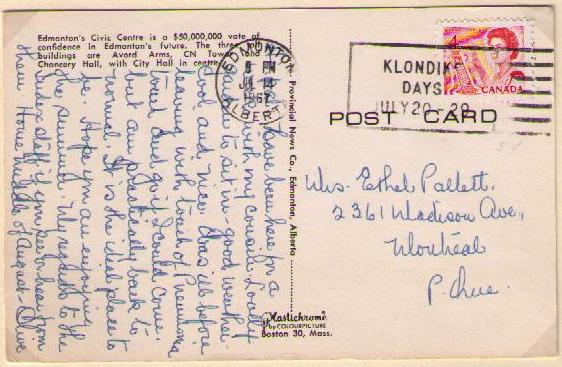 Edmonton's Civic Centre is a $50,000,000 vote of
confidence in Edmonton's future. The three tall
buildings are Avord Arms, CN Tower and
Chancery Hall, with City Hall in centre.
EDMONTON
PM
JL 14
1967
ALBERTA
KLONDIKE
DAYS
JULY 20-29
4
CANADA
POST CARD
Provincial News Co., Edmonton, Alberta
Plastichrome
by COLOURPICTURE
Boston 30, Mass.
Have been here for a
with my cousin. Lovely
to sit in - good weather.
Cool and nice. I was ill before
leaving with touch of Pneumonia
but am practically back to
normal. It is the ideal place to
be. Hope you are enjoying
the summer. My regards to the
Index staff if you see or hear from
them. Home middle of August - Olive
Mrs. Ethel Pallett,
2361 Madison Ave.,
Montreal
P. Que.